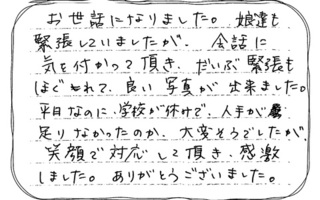 お世話になりました。娘達も
緊張していましたが、会話に
気を付かって頂き、だいぶ緊張も
ほぐされて、良い写真が出来ました。
平日なのに、学校が休けで、人手が
足りなかったのか、大変そうでしたが、
笑顔で対応して頂き、感激
しました。ありがとうございました。